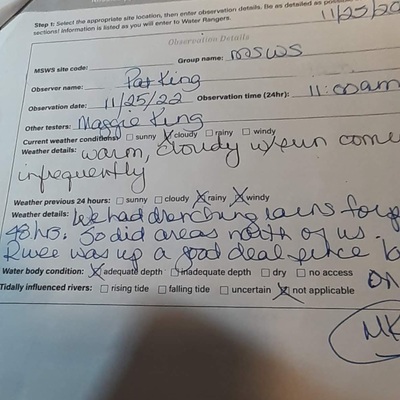 Step 1: Select the appropriate site location, then enter observation details. Be as detailed as possible
sections! Information is listed as you will to Water Rangers.
11/25/20
Observation Details
MSWS site code: Group name: MSWS
Observer name: Pat King
Observation date: 11/25/22 Observation time (24hr): 11:00am
Other testers: Maggie King
Current weather conditions: ☐ sunny ☒ cloudy ☐ rainy ☐ windy
Weather details: warm, cloudy w/sun come
infrequently
Weather previous 24 hours: ☐ sunny ☐ cloudy ☒ rainy ☒ windy
Weather details: We had drenching rains for
48 hrs. So did areas north of us.
River was up a good deal since
Water body condition: ☒ adequate depth ☐ inadequate depth ☐ dry ☐ no access
Tidally influenced rivers: ☐ rising tide ☐ falling tide ☐ uncertain ☒ not applicable
on
MK